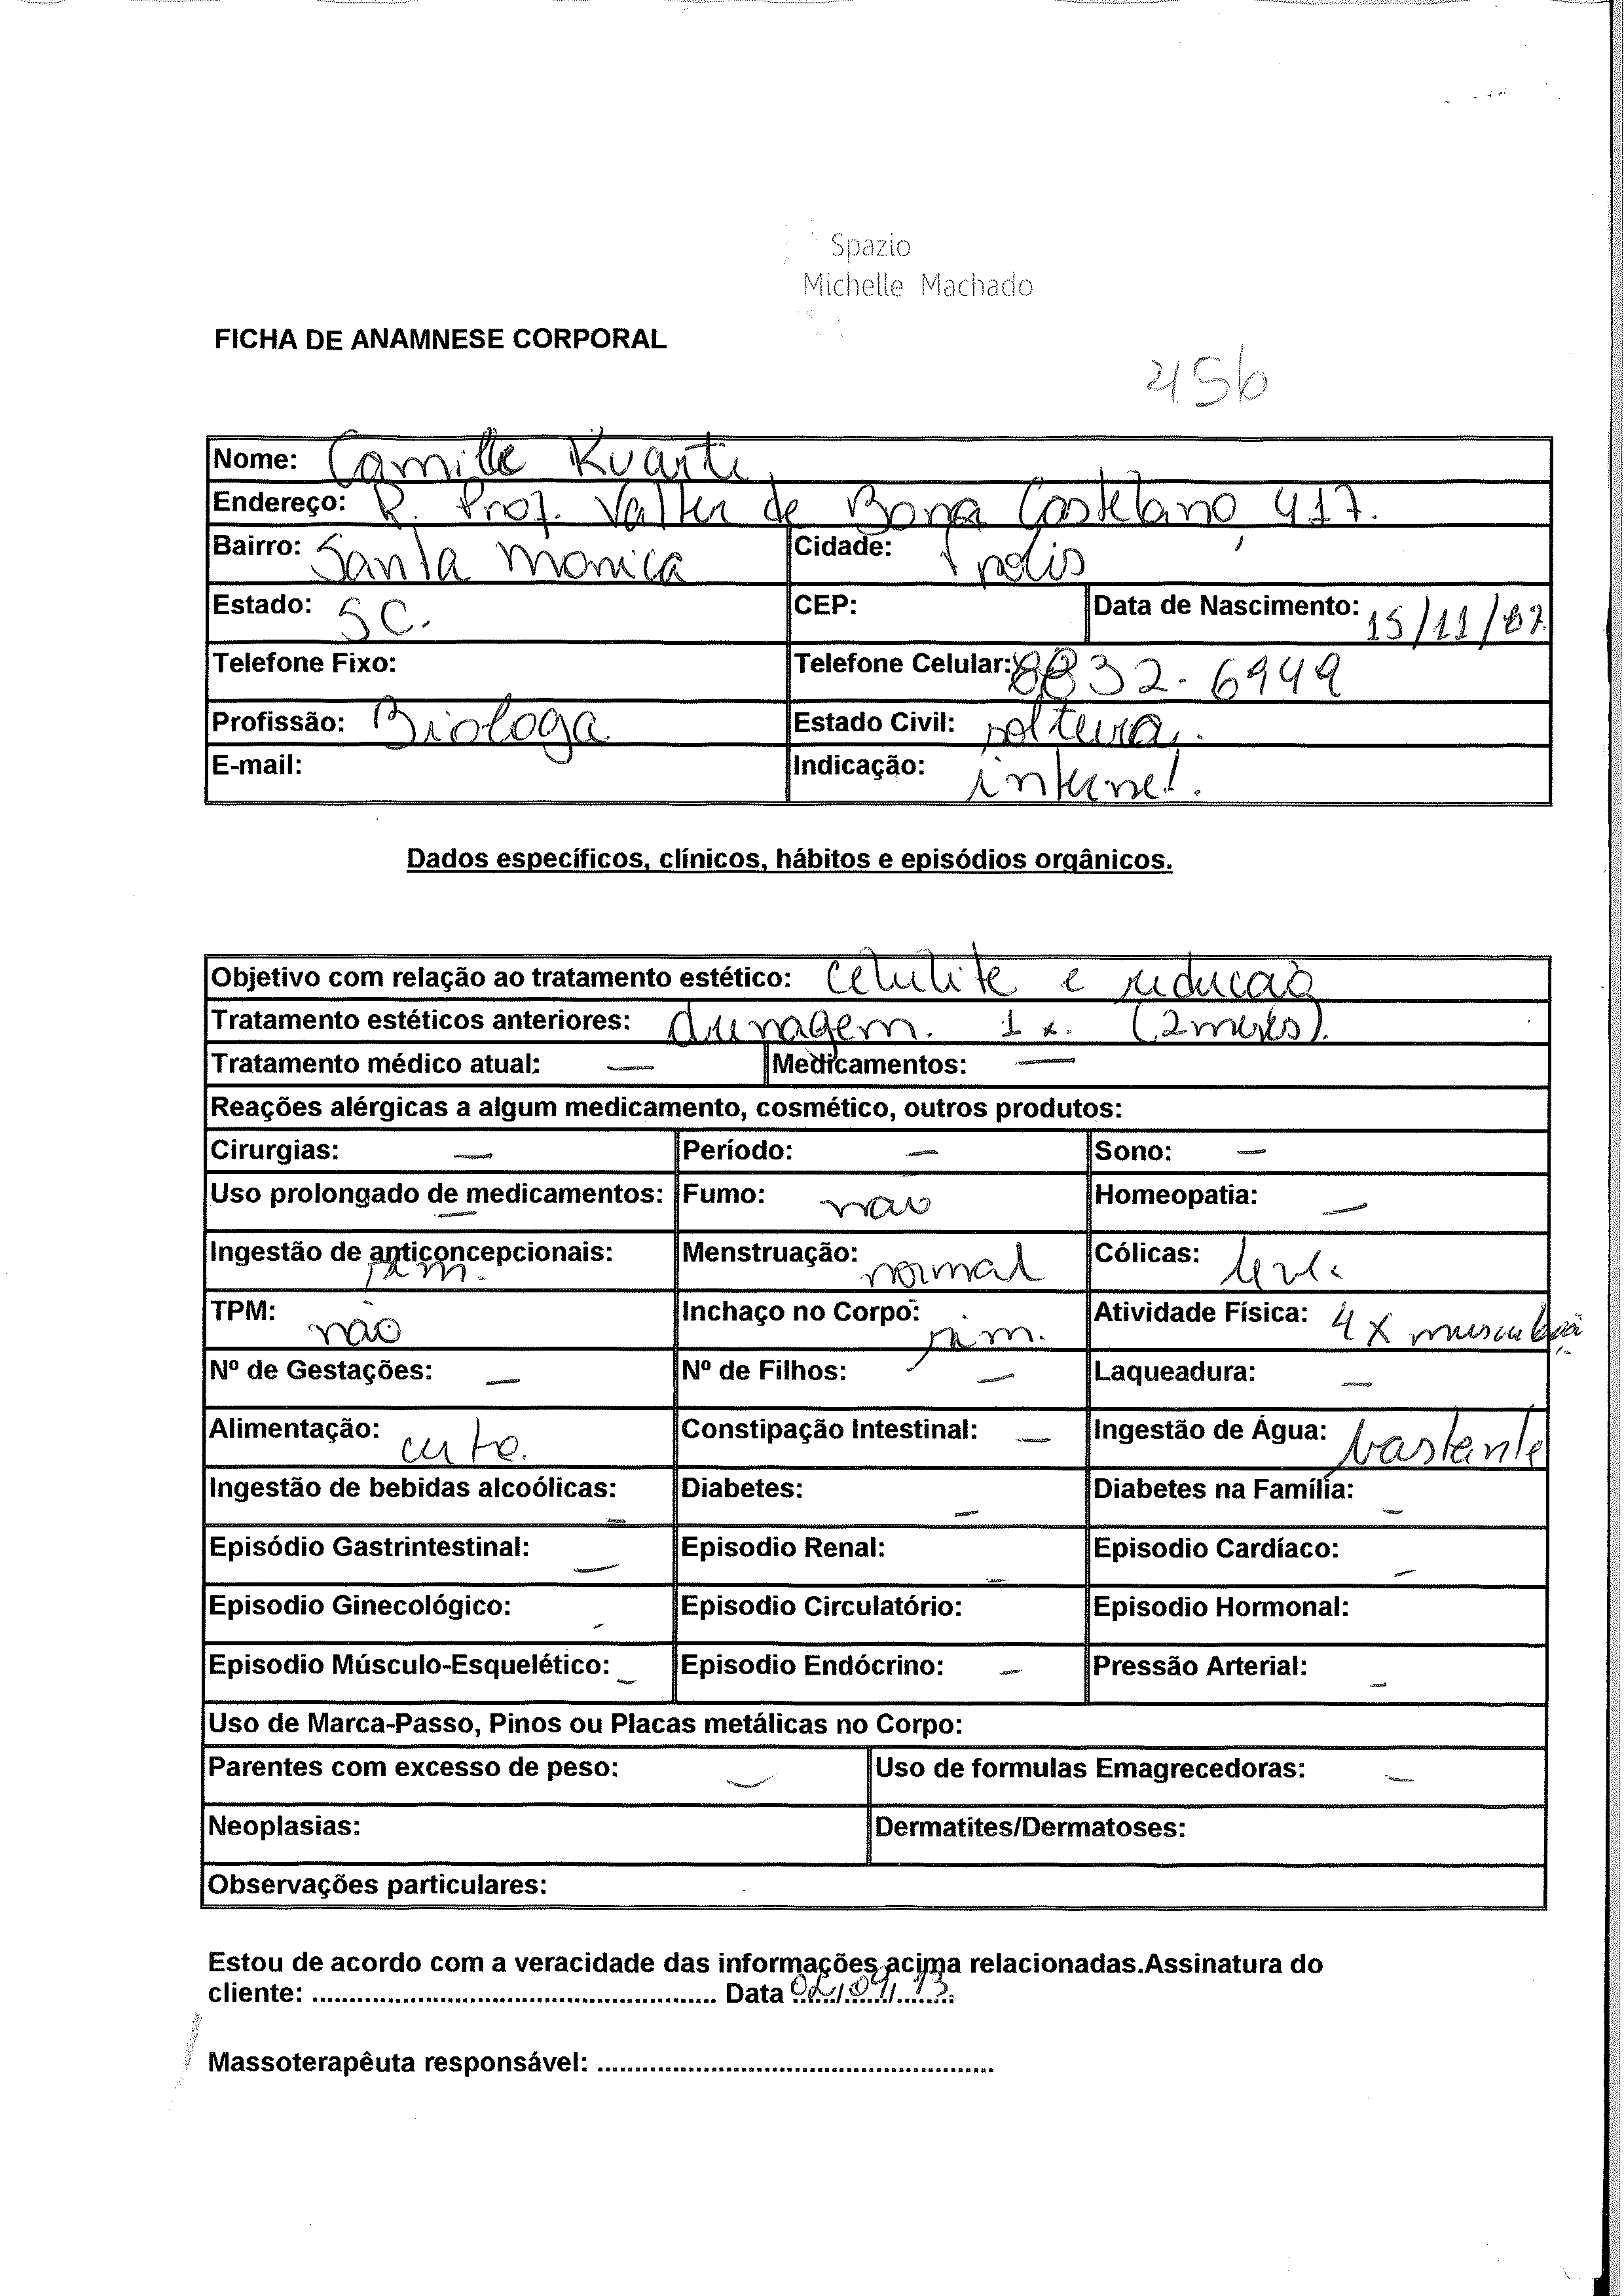 Spazio
Michelle Machado
FICHA DE ANAMNESE CORPORAL
456
Nome: Camille
Endereço: R. Prof. Valter de Bona Castelano, 417.
Bairro: Santa Monica Cidade: Fpolis
Estado: SC. CEP: Data de Nascimento: 15/11/87
Telefone Fixo: Telefone Celular: 8832-6949
Profissão: Biologa Estado Civil: solteira.
E-mail: Indicação: internet.
Dados específicos, clínicos, hábitos e episódios orgânicos.
Objetivo com relação ao tratamento estético: celulite e reducaõ
Tratamento estéticos anteriores: drenagem. 1 x. (2 meses).
Tratamento médico atual: — Medicamentos: —
Reações alérgicas a algum medicamento, cosmético, outros produtos:
Cirurgias: — Período: — Sono: —
Uso prolongado de medicamentos: — Fumo: nao Homeopatia: —
Ingestão de anticoncepcionais: sim. Menstruação: normal Cólicas: leve.
TPM: não Inchaço no Corpo: sim. Atividade Física: 4 x musculação
Nº de Gestações: — Nº de Filhos: — Laqueadura: —
Alimentação: Constipação Intestinal: — Ingestão de Água: bastante
Ingestão de bebidas alcoólicas: — Diabetes: — Diabetes na Família: —
Episódio Gastrintestinal: — Episodio Renal: — Episodio Cardíaco: —
Episodio Ginecológico: - Episodio Circulatório: Episodio Hormonal:
Episodio Músculo-Esquelético: - Episodio Endócrino: — Pressão Arterial: -
Uso de Marca-Passo, Pinos ou Placas metálicas no Corpo:
Parentes com excesso de peso: — Uso de formulas Emagrecedoras: —
Neoplasias: Dermatites/Dermatoses:
Observações particulares:
Estou de acordo com a veracidade das informações acima relacionadas.Assinatura do
cliente: ...................................................... Data 02/09/13.
Massoterapêuta responsável: .....................................................